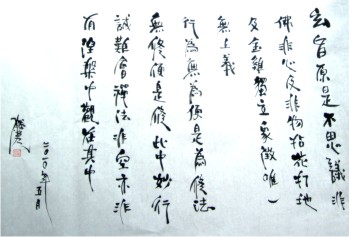 玄旨原是不思議非
佛非心及非物拈花打地
及金雞獨立象徵唯一
無上義
行為無為便是為修法
無修便是修此中妙行
誠難會禪法非空亦非
有涅槃中觀在其中
二〇一〇年五月